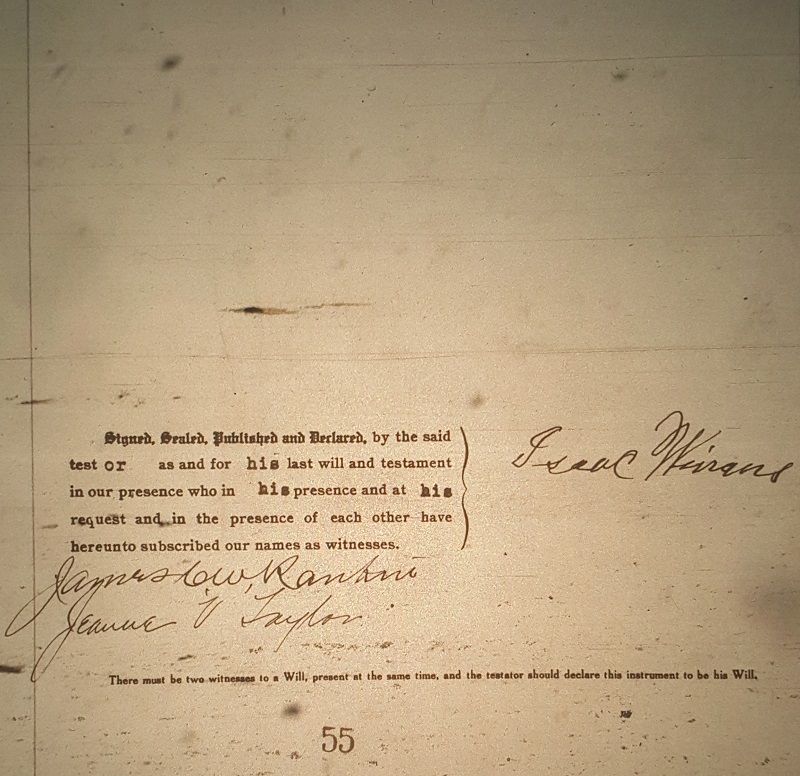 Signed, Sealed, Published and Declared, by the said
test or as and for his last will and testament
in our presence who in his presence and at his
request and in the presence of each other have
hereunto subscribed our names as witnesses.
Isaac Winans
James W. Rankin
Jeanne V Taylor
There must be two witnesses to a Will, present at the same time, and the testator should declare this instrument to be his Will.
55